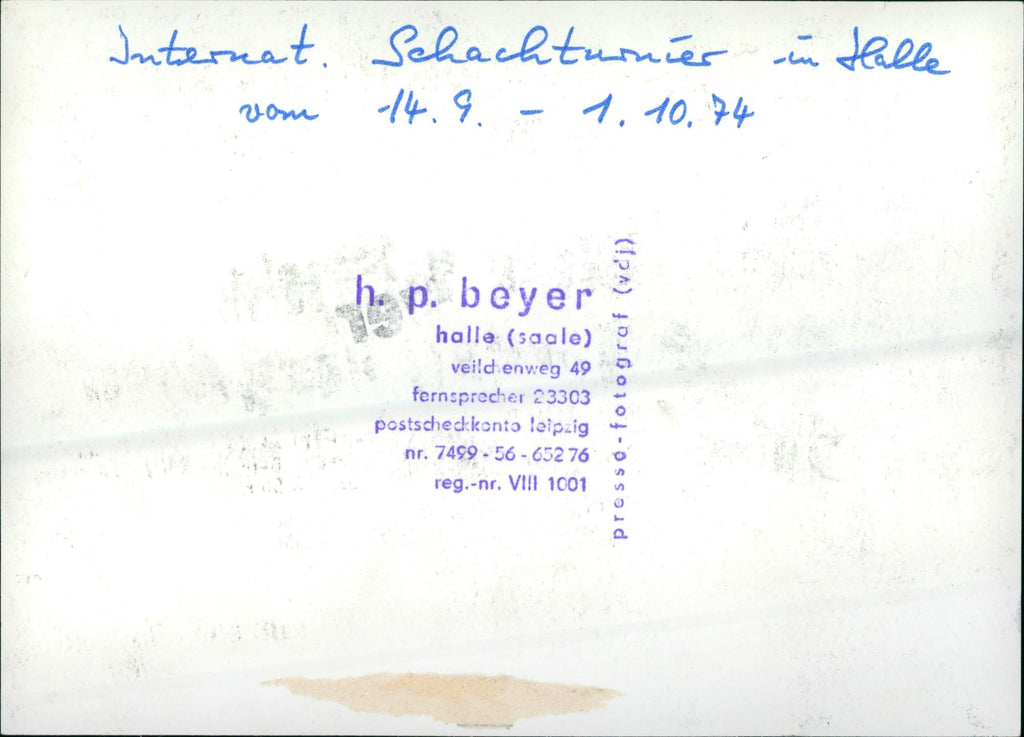 Internat. Schachturnier in Halle
vom 14. 9. - 1. 10. 74
h. p. beyer
halle (saale)
veilchenweg 49
fernsprecher 23303
postscheckkonto leipzig
nr. 7499 - 56 - 65276
reg.-nr. VIII 1001
presse-fotograf (vdj)